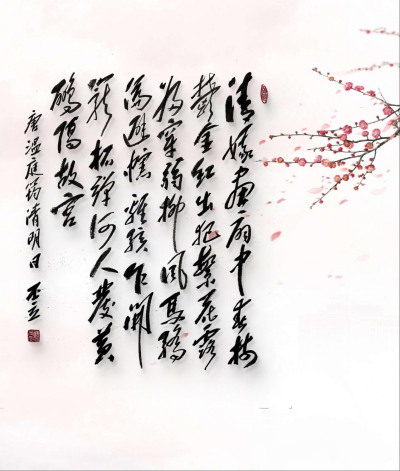 清娥畫扇中春樹
鬱金紅出犯繁花露
歸穿弱柳風馬驕
偏避幰雞駭乍開
籠柘彈何人發黃
鸝隔故宮
唐温庭筠清明日